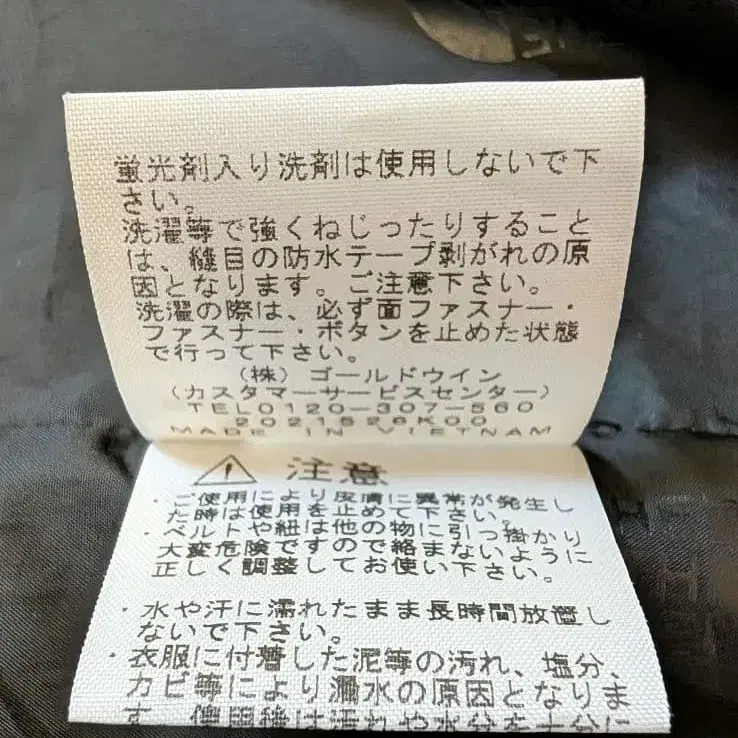 蛍光剤入り洗剤は使用しないで下
さい。
洗濯等で強くねじったりすること
は、縫目の防水テープ剥がれの原
因となります。ご注意下さい。
洗濯の際は、必ず面ファスナー・
ファスナー・ボタンを止めた状態
で行って下さい。
(株) ゴールドウイン
(カスタマーサービスセンター)
TEL0120-307-560
2021526K00
MADE IN VIETNAM
注意
・ご使用により皮膚に異常が発生し
た時は使用を止めて下さい。
・ベルトや紐は他の物に引っ掛かり
大変危険ですので絡まないように
正しく調整してお使い下さい。
・水や汗に濡れたまま長時間放置し
ないで下さい。
・衣服に付着した泥等の汚れ、塩分、
カビ等により漏水の原因となりま
す 使用後は汚れや水分を十分に